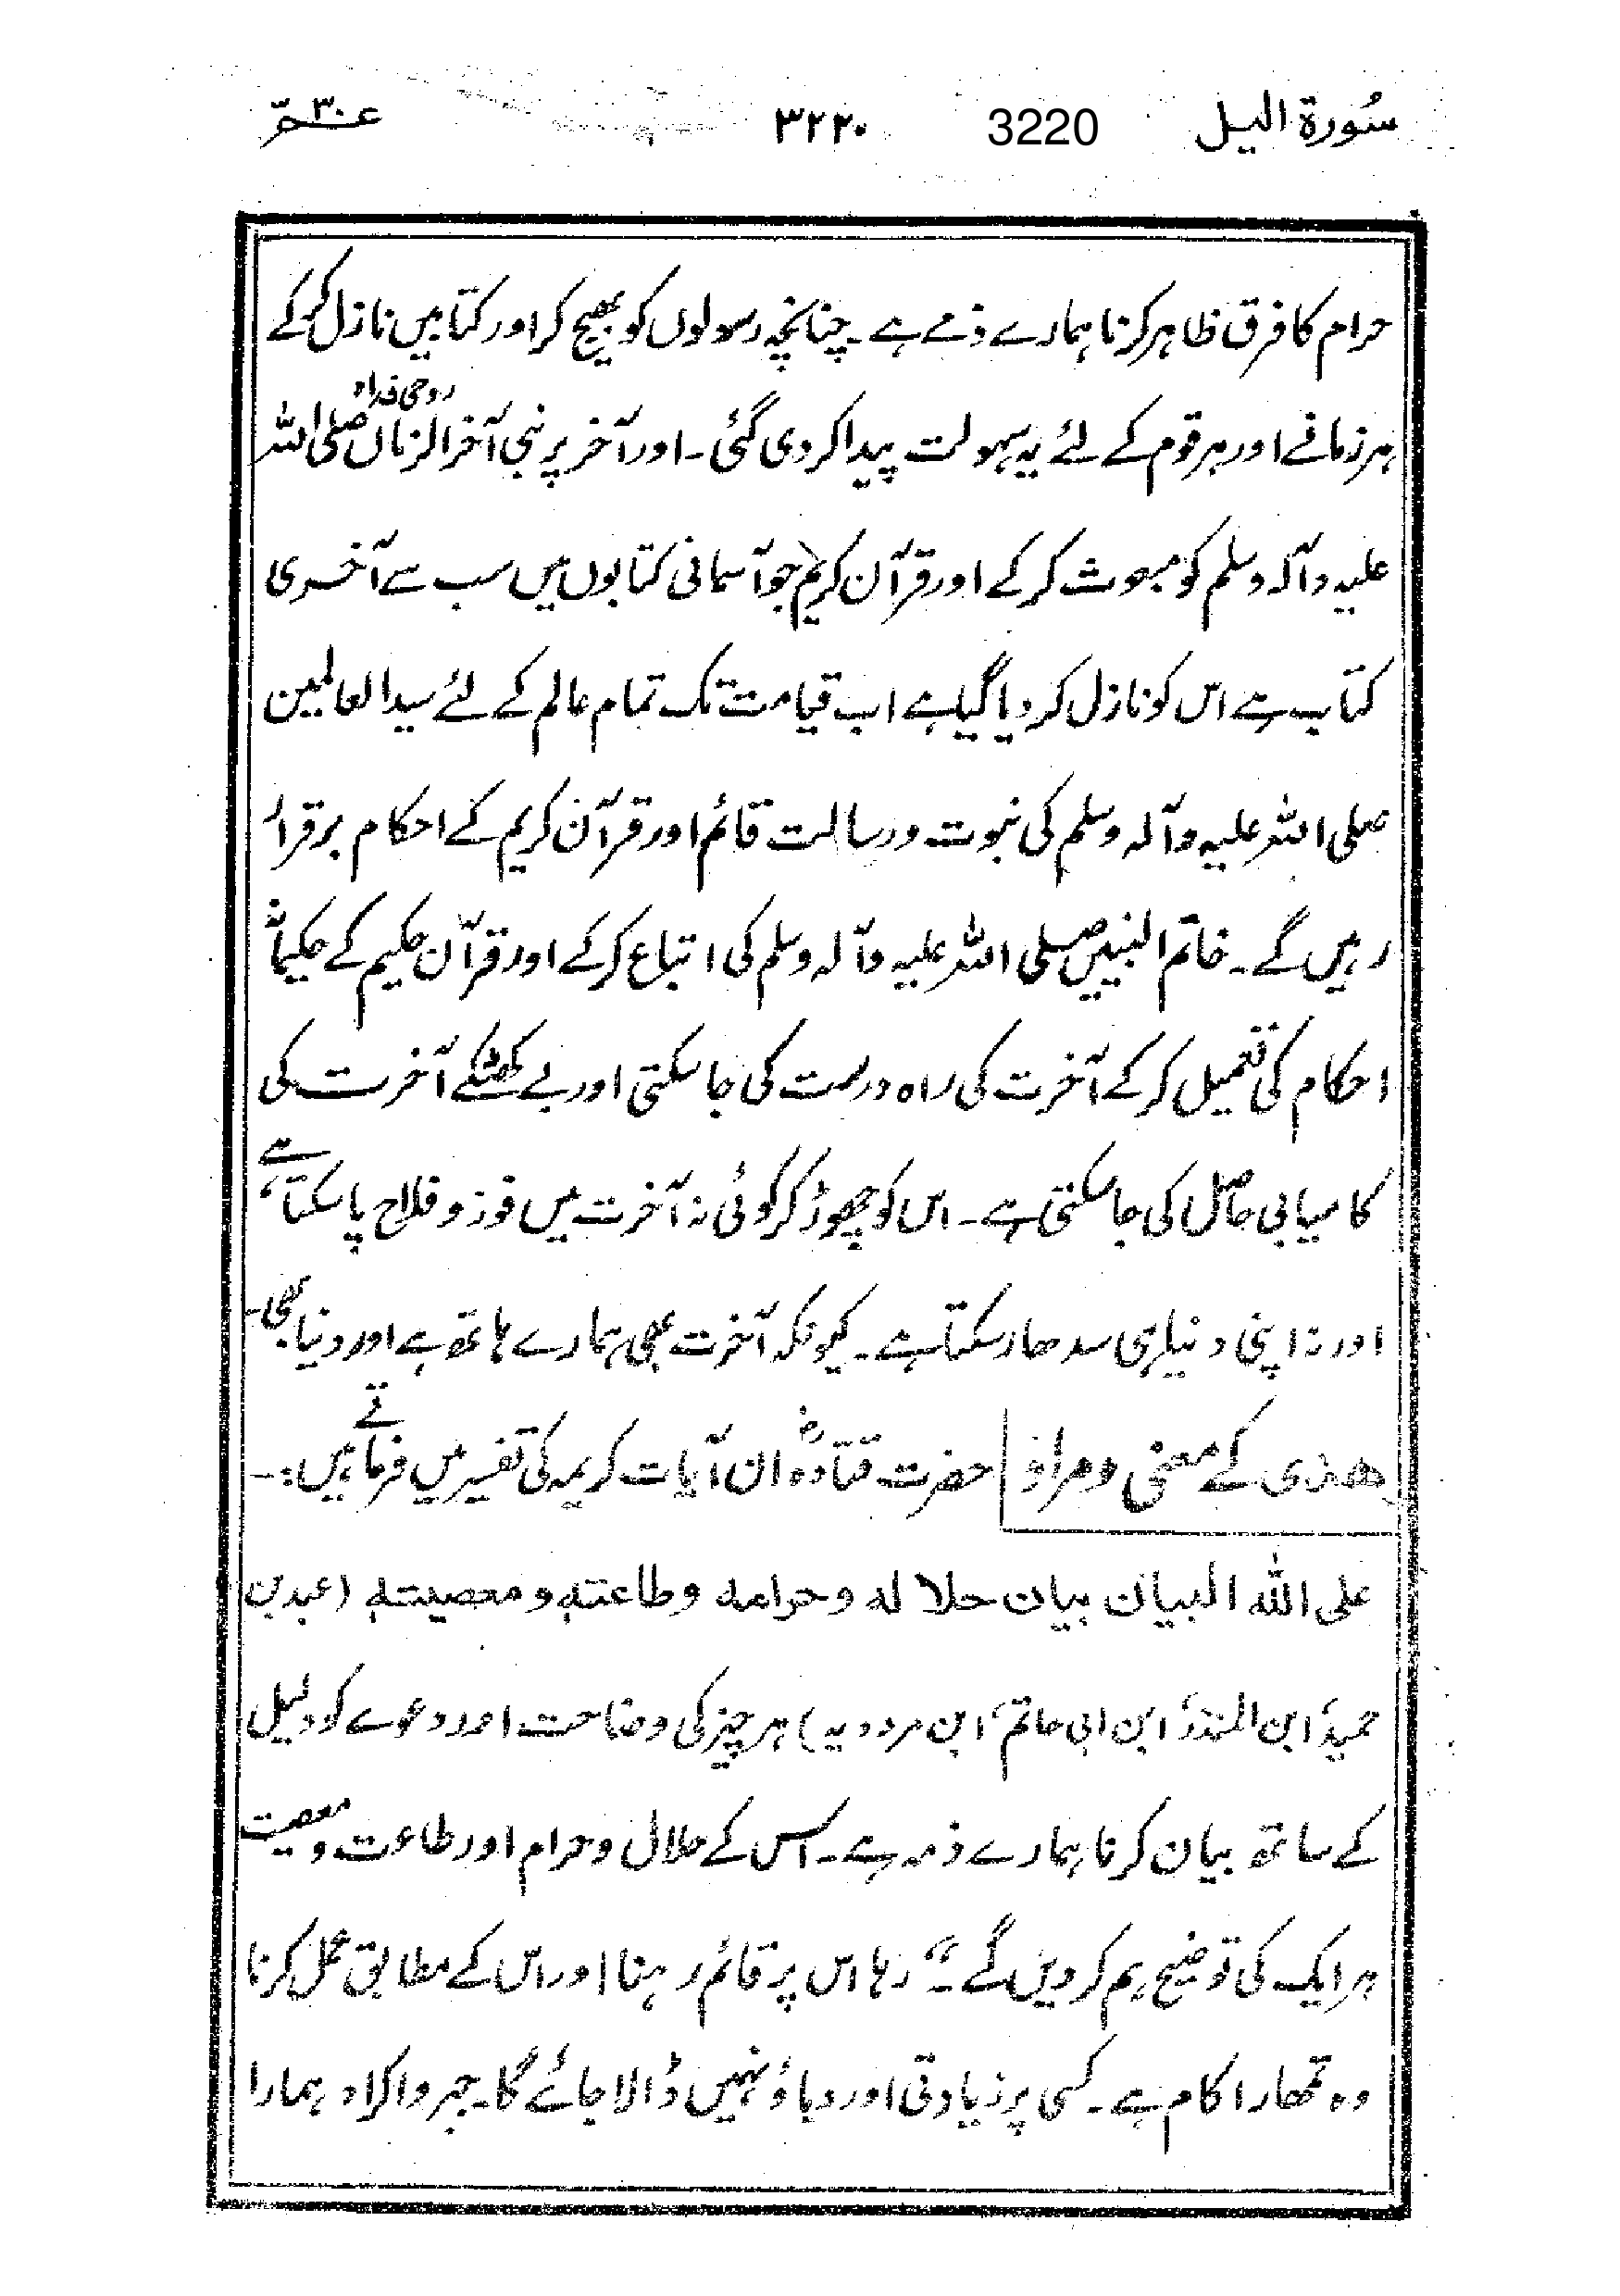 سُورة اليل 3220 ۳۲۲۰ عمّ۳۰
حرام کا فرق ظاہر کرنا ہمارے ذمے ہے۔ چنانچہ رسولوں کو بھیج کر اور کتابیں نازل کرکے
ہر زمانے اور ہر قوم کے لئے یہ سہولت پیدا کر دی گئی۔ اور آخر پر نبی آخر الزماں روحی فداہ صلی اللہ
علیہ وآلہ وسلم کو مبعوث کر کے اور قرآن کریم جو آسمانی کتابوں میں سب سے آخری
کتاب ہے اس کو نازل کر دیا گیا ہے اب قیامت تک تمام عالم کے لئے سید العالمین
صلی اللہ علیہ وآلہ وسلم کی نبوت و رسالت قائم اور قرآن کریم کے احکام برقرار
رہیں گے۔ خاتم النبیین صلی اللہ علیہ وآلہ وسلم کی اتباع کرکے اور قرآن حکیم کے حکیمانہ
احکام کی تعمیل کر کے آخرت کی راہ درست کی جا سکتی اور بے کھٹکے آخرت کی
کامیابی حاصل کی جا سکتی ہے۔ اس کو چھوڑ کر کوئی نہ آخرت میں فوز و فلاح پا سکتا ہے،
اور نہ اپنی دنیا ہی سدھار سکتا ہے۔ کیونکہ آخرت بھی ہمارے ہاتھ ہے اور دنیا بھی۔
ھدٰی کے معنی و مراد حضرت قتادہؓ ان آیات کریمہ کی تفسیر میں فرماتے ہیں:۔
على الله البيان بيان حلاله وحرامه وطاعته ومعصيته (عبد بن
حمید، ابن المنذر، ابن ابی حاتم، ابن مردویہ) ہر چیز کی وضاحت اور دعوے کو دلیل
کے ساتھ بیان کرنا ہمارے ذمہ ہے۔ اس کے حلال و حرام اور طاعت و معصیت
ہر ایک کی توضیح ہم کر دیں گے۔" رہا اس پر قائم رہنا اور اس کے مطابق عمل کرنا
وہ تمھارا کام ہے۔ کسی پر زیادتی اور دباؤ نہیں ڈالا جائے گا۔ جبر و اکراہ ہمارا